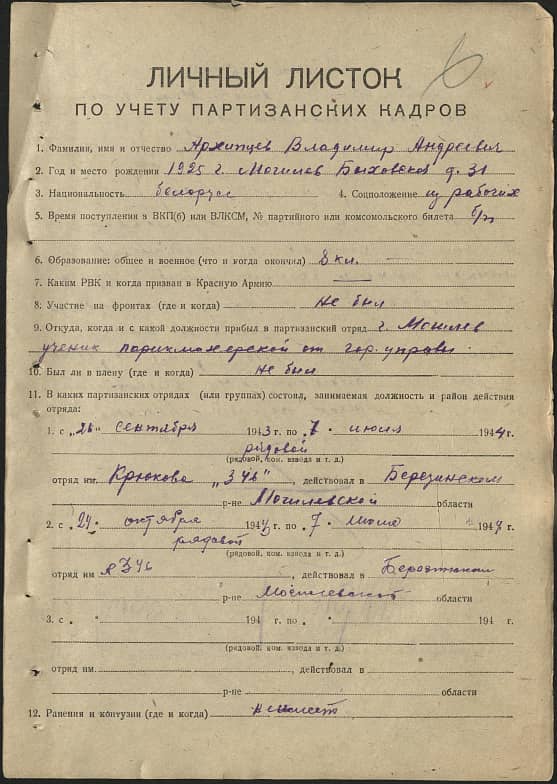 6
ЛИЧНЫЙ ЛИСТОК
ПО УЧЕТУ ПАРТИЗАНСКИХ КАДРОВ
1. Фамилия, имя и отчество Архипцев Владимир Андреевич
2. Год и место рождения 1925 г. Могилев Быховская д. 31
3. Национальность белорусс 4. Соцположение из рабочих
5. Время поступления в ВКП(б) или ВЛКСМ, № партийного или комсомольского билета б/п
6. Образование: общее и военное (что и когда окончил) 8 кл.
7. Каким РВК и когда призван в Красную Армию —
8. Участие на фронтах (где и когда) не был
9. Откуда, когда и с какой должности прибыл в партизанский отряд г. Могилев
ученик парикмахерской от гор. управы
10. Был ли в плену (где и когда) не был
11. В каких партизанских отрядах (или группах) состоял, занимаемая должность и район действия
отряда:
1. с „26“ сентября 1943 г. по 7 · июля 1944 г.
рядовой
(рядовой, ком. взвода и т. д.)
отряд им. Крюкова „346“, действовал в Березинском
р-не Могилевской области
2. с „24· октября 1943 г. по „7 · июля 1944 г.
рядовой
(рядовой, ком. взвода и т. д.)
отряд им 346, действовал в
р-не Могилевской области
3. с „ “ 194 г. по „ “ 194 г.
(рядовой, ком. взвода и т. д.)
отряд им. , действовал в
р-не области
12. Ранения и контузии (где и когда) не имеет